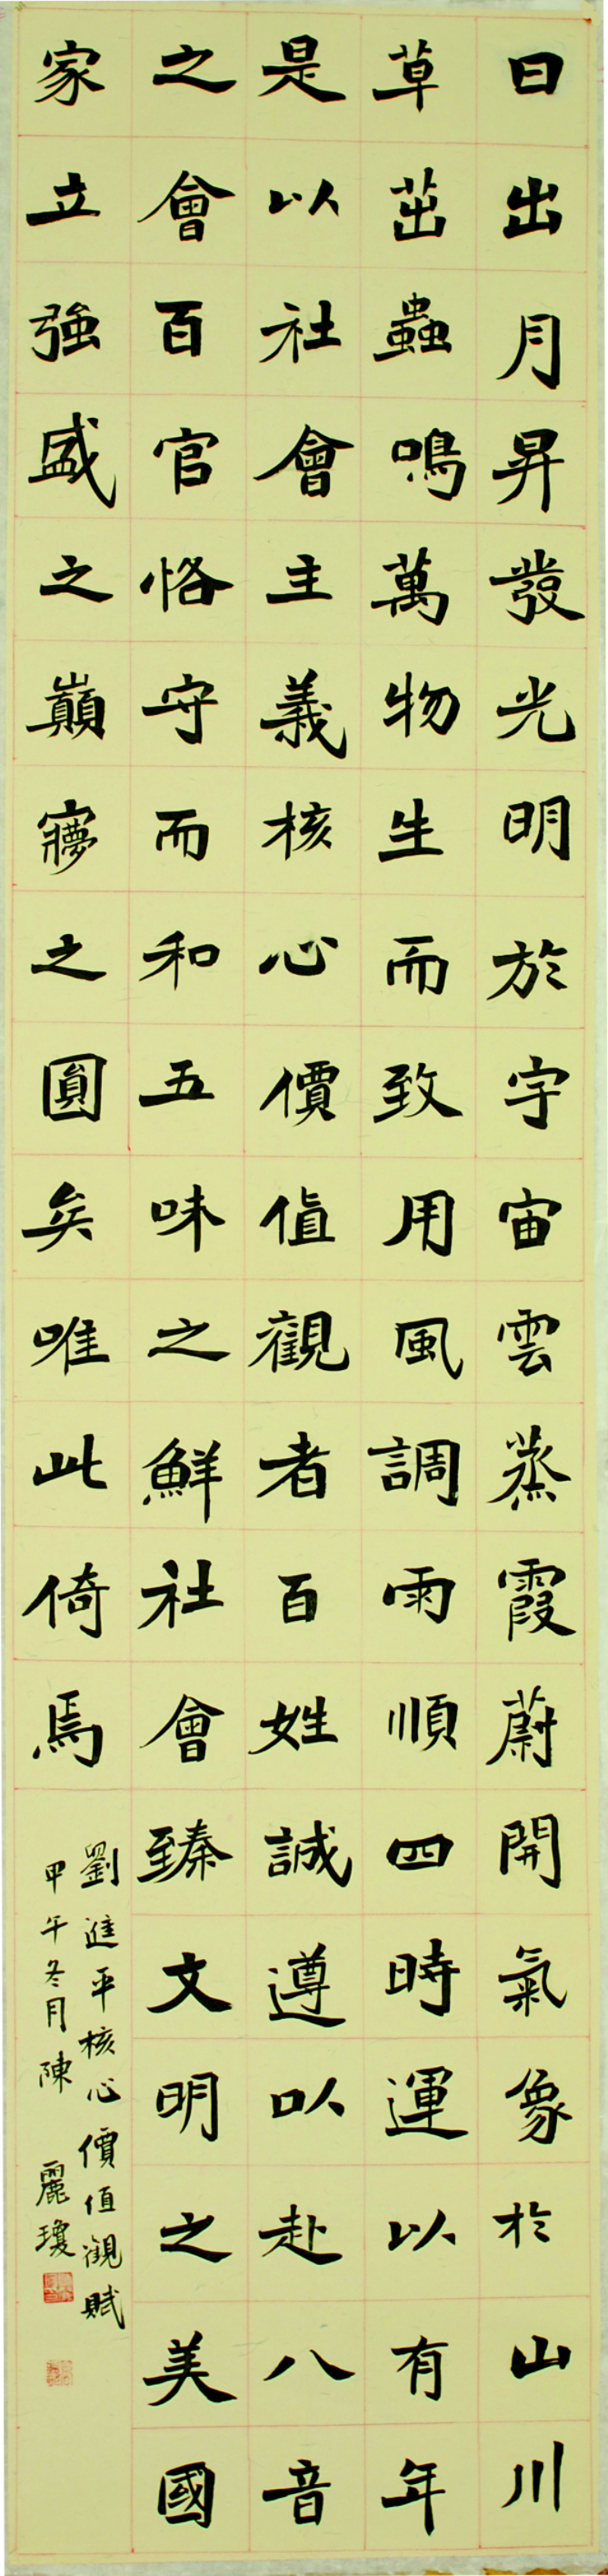 日出月昇發光明於宇宙雲蒸霞蔚開氣象於山川
草茁蟲鳴萬物生而致用風調雨順四時運以有年
是以社會主義核心價值觀者百姓誠遵以赴八音
之會百官恪守而和五味之鮮社會臻文明之美國
家立強盛之巔寢之圓矣唯此倚焉
劉進平核心價值觀賦
甲午冬月陳麗瓊